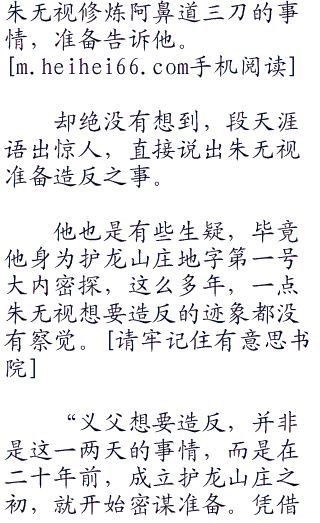 朱无视修炼阿鼻道三刀的事
情，准备告诉他。
[m.heihei66.com手机阅读]
却绝没有想到，段天涯
语出惊人，直接说出朱无视
准备造反之事。
他也是有些生疑，毕竟
他身为护龙山庄地字第一号
大内密探，这么多年，一点
朱无视想要造反的迹象都没
有察觉。[请牢记住有意思书
院]
“义父想要造反，并非
是这一两天的事情，而是在
二十年前，成立护龙山庄之
初，就开始密谋准备。凭借